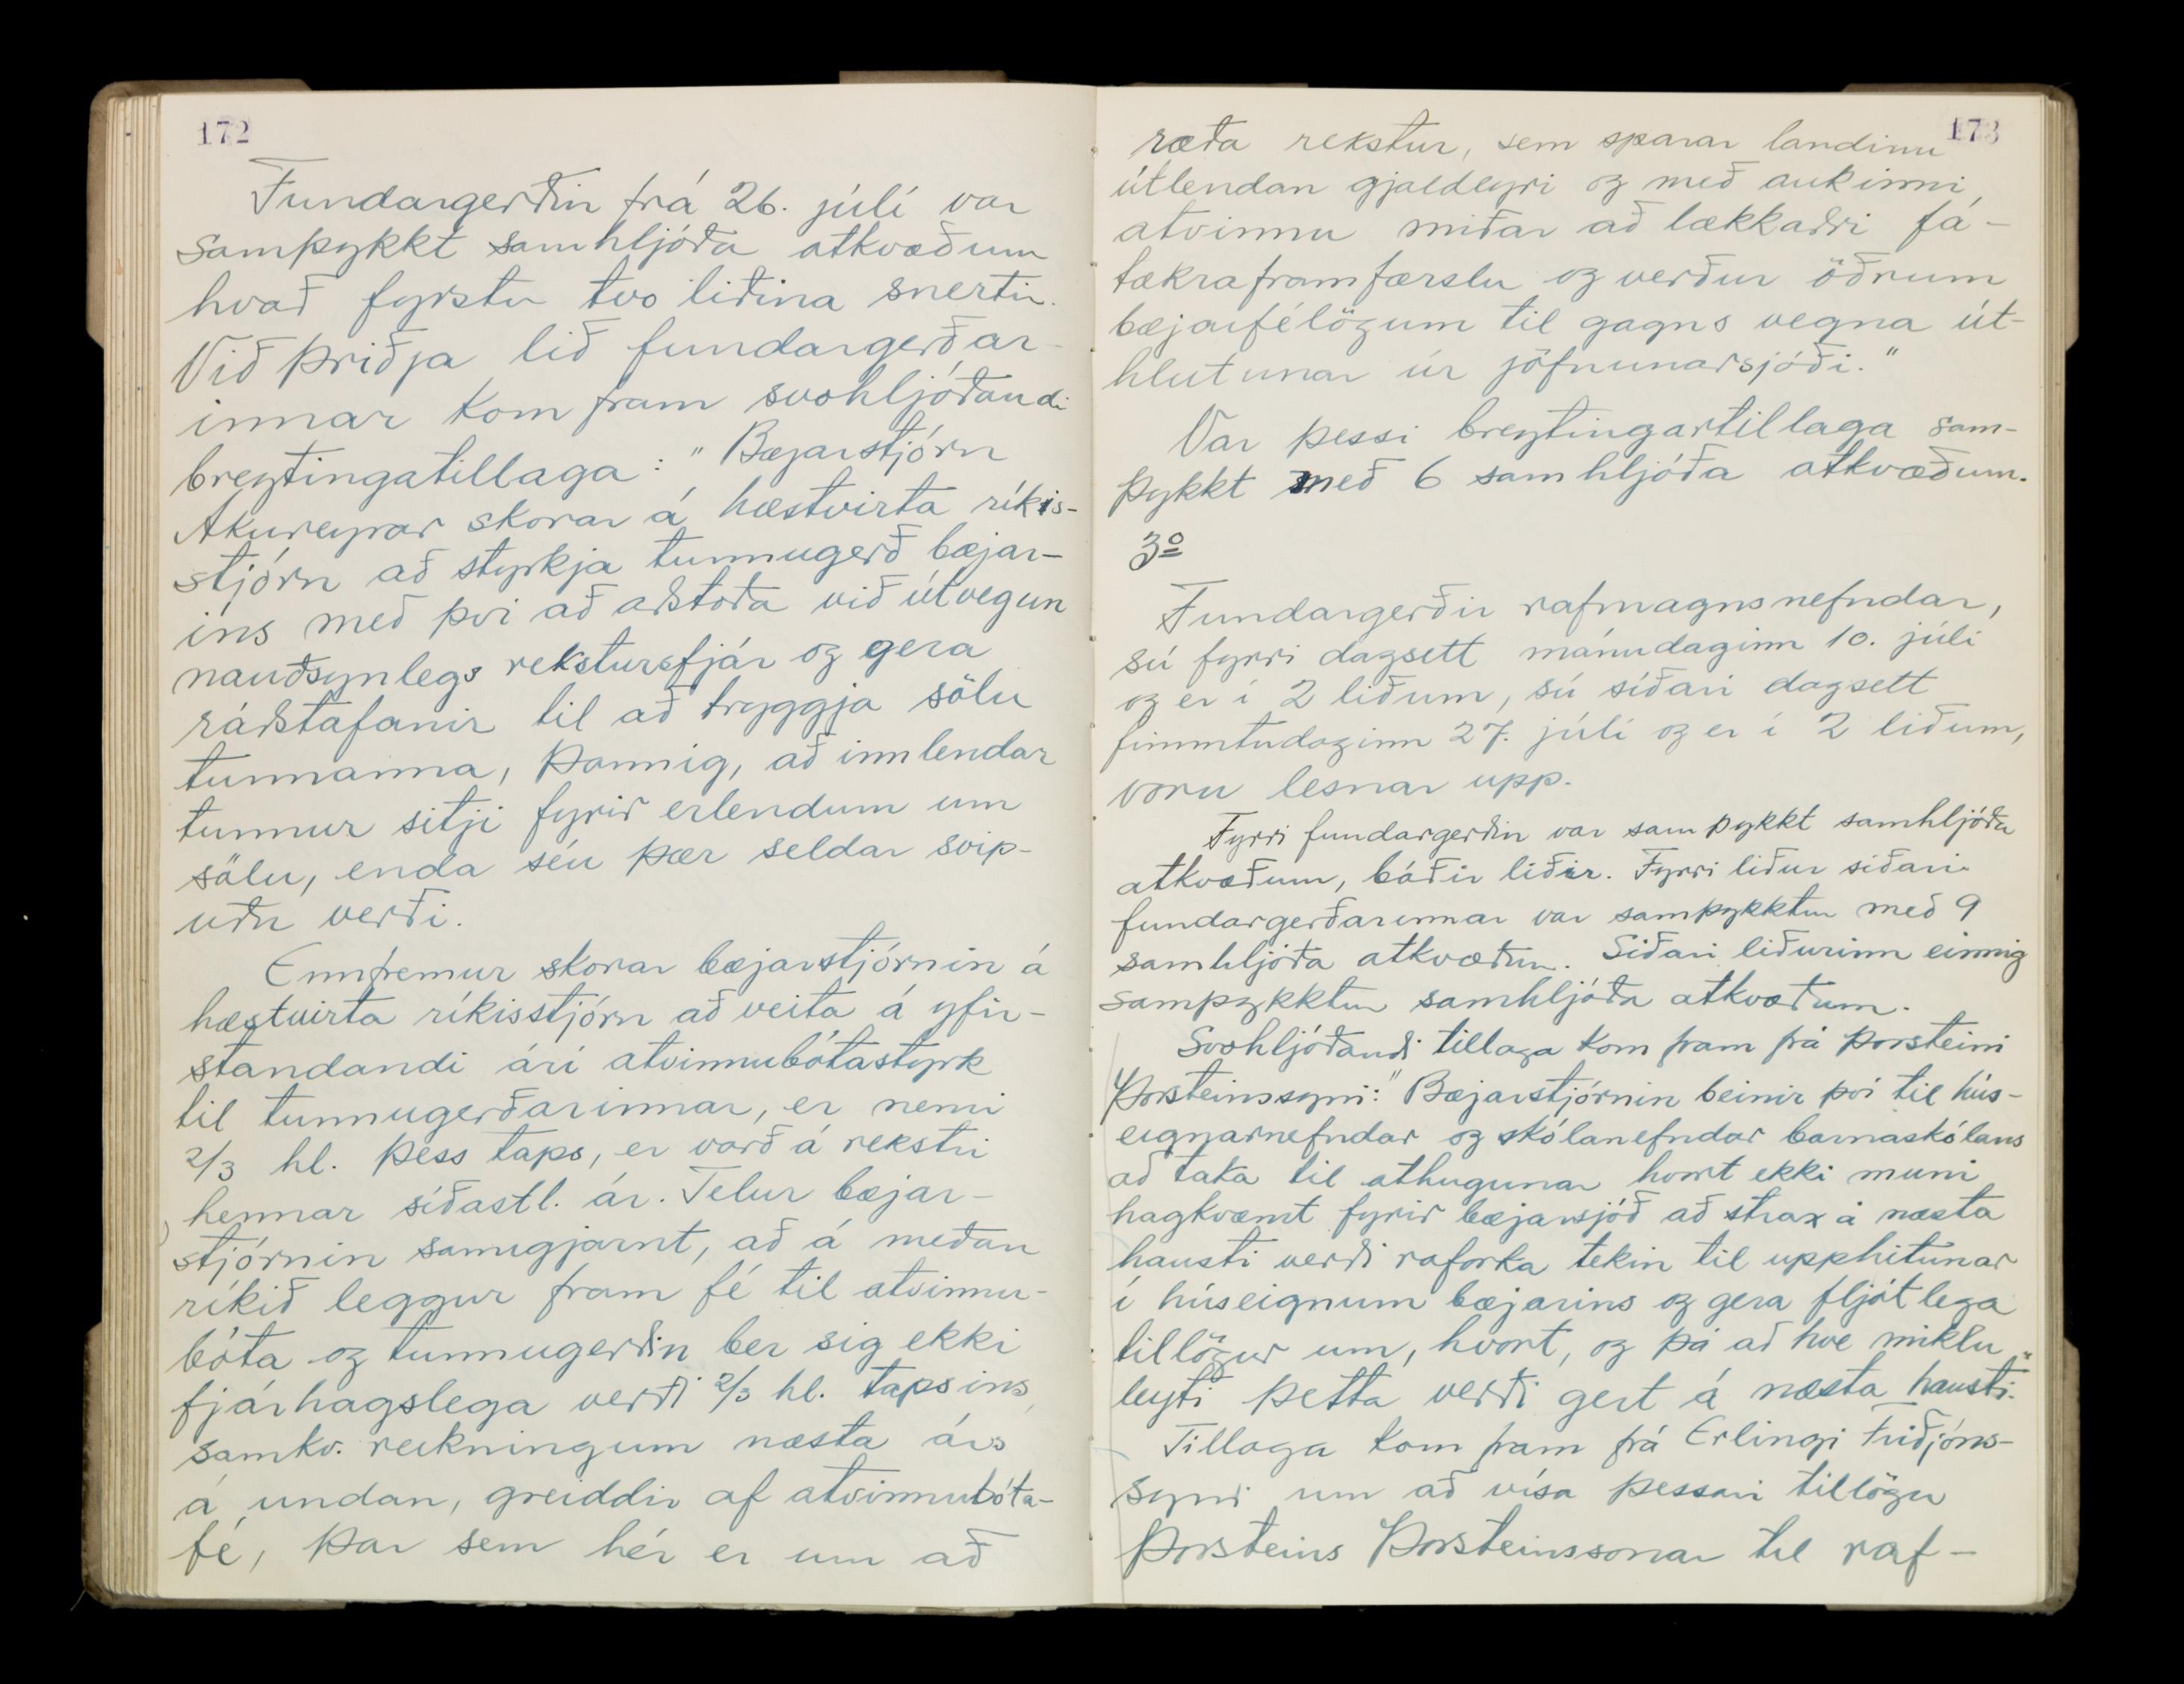 172
Fundargerðin frá 26. júlí var
samþykkt samhljóða atkvæðum
hvað fyrstu tvo liðina snertir.
Við þriðja lið fundargerðar-
innar kom fram svohljóðandi
breytingatillaga: "Bæjarstjórn
Akureyrar skorar á hæstvirta ríkis-
stjórn að styrkja tunnugerð bæjar-
ins með því að aðstoða við útvegun
nauðsynlegs rekstursfjár og gera
ráðstafanir til að tryggja sölu
tunnanna, þannig, að innlendar
tunnur sitji fyrir erlendum um
sölu, enda séu þær seldar svip-
uðu verði.
Ennfremur skorar bæjarstjórnin á
hæstvirta ríkisstjórn að veita á yfir-
standandi ári atvinnubótastyrk
til tunnugerðarinnar, er nemi
2/3 hl. þess taps, er varð á rekstri
hennar síðastl. ár. Telur bæjar-
stjórnin sanngjarnt, að á meðan
ríkið leggur fram fé til atvinnu-
bóta og tunnugerðin ber sig ekki
fjárhagslega verði 2/3 hl. tapsins,
samkv. reikningum næsta árs
á undan, greiddir af atvinnubóta-
fé, þar sem hér er um að
173
ræða rekstur, sem sparar landinu
útlendan gjaldeyri og með aukinni
atvinnu miðar að lækkaðri fá-
tækraframfærslu og verður öðrum
bæjarfélögum til gagns vegna út-
hlutunar úr jöfnunarsjóði."
Var þessi breytingartillaga sam-
þykkt með 6 samhljóða atkvæðum.
3º
Fundargerðir rafmagnsnefndar,
sú fyrri dagsett mánudaginn 10. júlí
og er í 2 liðum, sú síðari dagsett
fimmtudaginn 27. júlí og er í 2 liðum,
voru lesnar upp.
Fyrri fundargerðin var samþykkt samhljóða
atkvæðum, báðir liðir. Fyrri liður síðari
fundargerðarinnar var samþykktur með 9
samhljóða atkvæðum. Síðari liðurinn einnig
samþykktur samhljóða atkvæðum.
Svohljóðandi tillaga kom fram frá Þorsteini
Þorsteinssyni: "Bæjarstjórnin beinir því til hús-
eignarnefndar og skólanefndar barnaskólans
að taka til athugunar hvort ekki muni
hagkvæmt fyrir bæjarsjóð að strax á næsta
hausti verði raforka tekin til upphitunar
í húseignum bæjarins og gera fljótlega
tillögur um, hvort, og þá að hve miklu
leyti þetta verði gert á næsta hausti."
Tillaga kom fram frá Erlingi Friðjóns-
syni um að vísa þessari tillögu
Þorsteins Þorsteinssonar til raf-